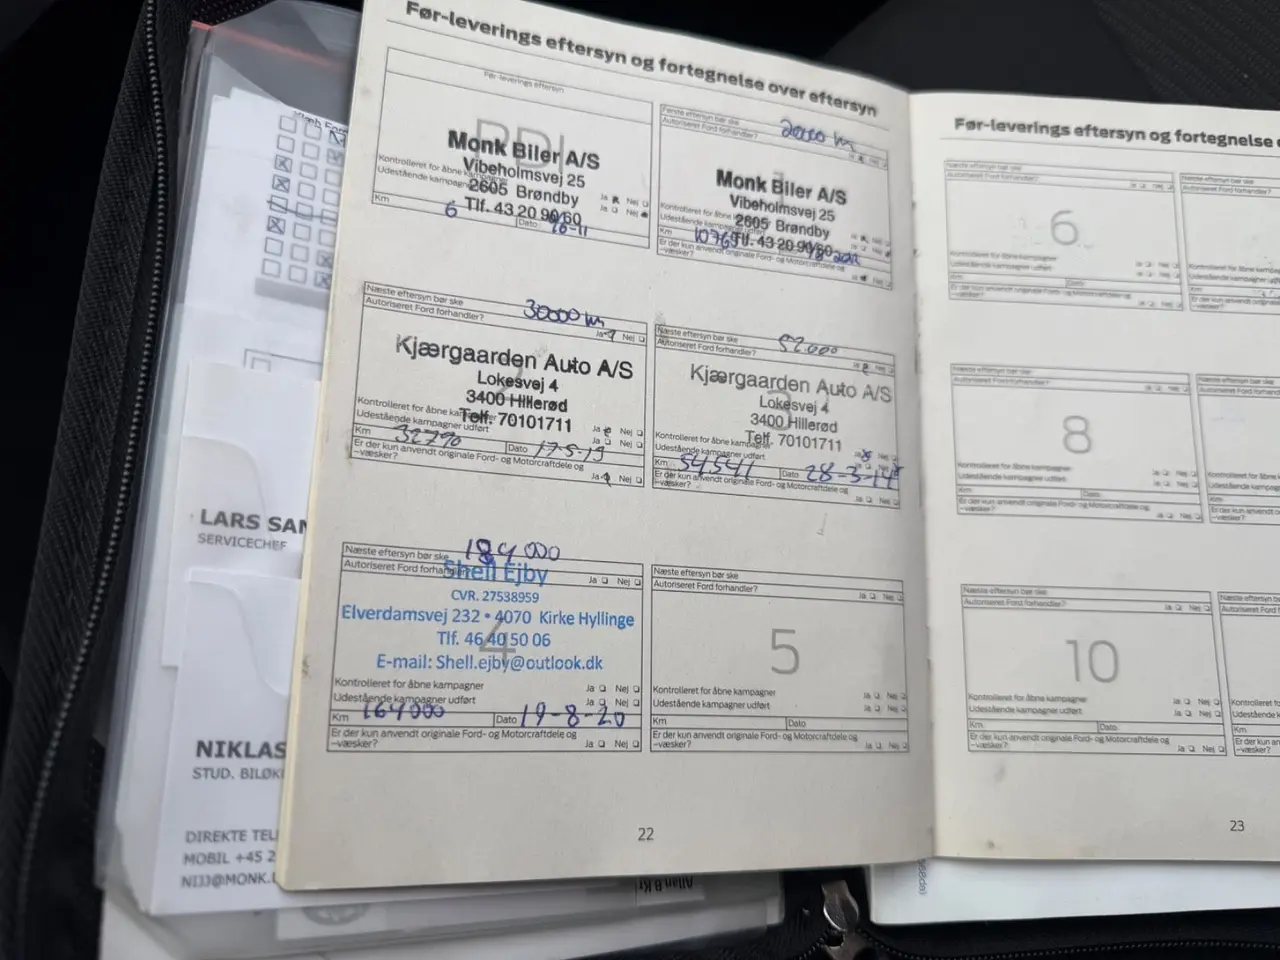 Før-leverings eftersyn og fortegnelse over eftersyn
Før-leverings eftersyn
PDI
Monk Biler A/S
Vibeholmsvej 25
2605 Brøndby
Tlf. 43 20 90 60
Kontrolleret for åbne kampagner
Udestående kampagner
Ja Nej
Ja Nej
Km 6 Dato
Første eftersyn bør ske 20000 km
Autoriseret Ford forhandler? Ja Nej
Monk Biler A/S
Vibeholmsvej 25
2605 Brøndby
Tlf. 43 20 90 60
Kontrolleret for åbne
Udestående kampagner
Km
Er der kun anvendt originale Ford- og Motorcraftdele og
-væsker?
Næste eftersyn bør ske 30000 km
Autoriseret Ford forhandler? Ja Nej
Kjærgaarden Auto A/S
Lokesvej 4
3400 Hillerød
Telf. 70101711
Kontrolleret for åbne kampagner Ja Nej
Udestående kampagner udført
Km 32790 Dato
Er der kun anvendt originale Ford- og Motorcraftdele og
-væsker? Ja Nej
Næste eftersyn bør ske 52.000
Autoriseret Ford forhandler? Ja Nej
3
Kjærgaarden Auto A/S
Lokesvej 4
3400 Hillerød
Telf. 70101711
Kontrolleret for åbne kampagner
Udestående kampagner udført
Km 54541 Dato
Er der kun anvendt originale Ford- og Motorcraftdele og
-væsker? Ja Nej
Næste eftersyn bør ske 184000
Autoriseret Ford forhandler? Ja Nej
Shell Ejby
CVR. 27538959
Elverdamsvej 232 • 4070 Kirke Hyllinge
4
Tlf. 46 40 50 06
E-mail: Shell.ejby@outlook.dk
Kontrolleret for åbne kampagner Ja Nej
Udestående kampagner udført Ja Nej
Km 164000 Dato 19-8-20
Er der kun anvendt originale Ford- og Motorcraftdele og
-væsker? Ja Nej
Næste eftersyn bør ske
Autoriseret Ford forhandler? Ja Nej
5
Kontrolleret for åbne kampagner Ja Nej
Udestående kampagner udført Ja Nej
Km Dato
Er der kun anvendt originale Ford- og Motorcraftdele og
-væsker? Ja Nej
22
Før-leverings eftersyn og fortegnelse
Næste eftersyn bør ske
Autoriseret Ford forhandler? Ja Nej
6
Kontrolleret for åbne kampagner Ja Nej
Udestående kampagner udført Ja Nej
Km Dato
Er der kun anvendt originale Ford- og Motorcraftdele og
-væsker? Ja Nej
Næste eftersyn bør ske
Autoriseret Ford forhandler? Ja Nej
8
Kontrolleret for åbne kampagner Ja Nej
Udestående kampagner udført Ja Nej
Km Dato
Er der kun anvendt originale Ford- og Motorcraftdele og
-væsker? Ja Nej
Næste eftersyn bør ske
Autoriseret Ford forhandler? Ja Nej
10
Kontrolleret for åbne kampagner Ja Nej
Udestående kampagner udført Ja Nej
Km Dato
Er der kun anvendt originale Ford- og Motorcraftdele og
-væsker? Ja Nej
23
LARS SAN
SERVICECHEF
NIKLAS
STUD. BILØK
DIREKTE TEL
MOBIL +45 2
NIJJ@MONK.